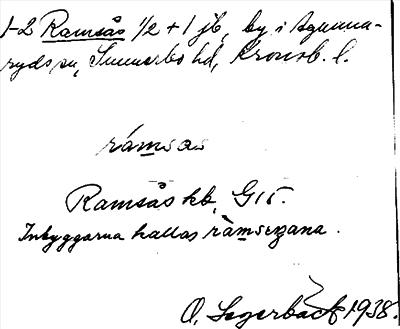 1-2 Ramsås 1/2 + 1 jb, by i Agunna-
ryds sn, Sunnerbo hd, Kronob. l.
rámsas
Ramsås kb, G15.
Inbyggarna kallas ràmsezana.
O. Segerbäck 1938.